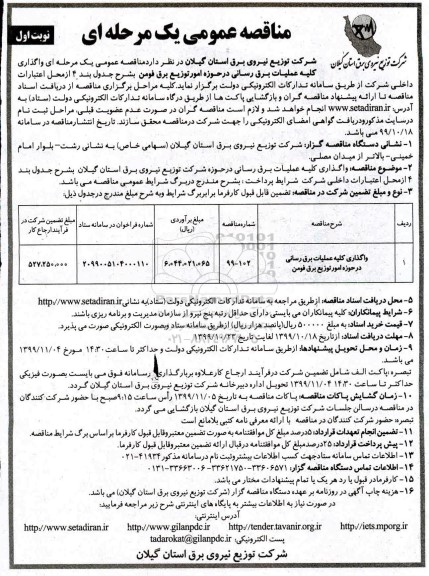 نوبت اول
مناقصه عمومی یک مرحله ای
شرکت توزیع نیروی برق استان گیلان
شرکت توزیع نیروی برق استان گیلان در نظر دارد مناقصه عمومی یک مرحله ای واگذاری
کلیه عملیات برق رسانی در حوزه امور توزیع برق فومن بشرح جدول بند ۴ از محل اعتبارات
داخلی شرکت از طریق سامانه تدارکات الکترونیکی دولت برگزار نماید. کلیه مراحل برگزاری مناقصه از دریافت اسناد
مناقصه تا ارائه پیشنهاد مناقصه گران و بازگشایی پاکت ها از طریق درگاه سامانه تدارکات الکترونیکی دولت (ستاد) به
آدرس: www.setadiran.ir انجام خواهد شد و لازم است مناقصه گران در صورت عدم عضویت قبلی، مراحل ثبت نام
در سایت مذکور و دریافت گواهی امضای الکترونیکی را جهت شرکت در مناقصه محقق سازند. تاریخ انتشار مناقصه در سامانه
۹۹/۱۰/۱۸ می باشد.
۱- نشانی دستگاه مناقصه گزار: شرکت توزیع نیروی برق استان گیلان (سهامی خاص) به نشانی رشت- بلوار امام
خمینی- بالاتر از میدان مصلی.
۲- موضوع مناقصه: واگذاری کلیه عملیات برق رسانی در حوزه شرکت توزیع نیروی برق استان گیلان بشرح جدول بند
۴ از محل اعتبارات داخلی شرکت شرایط پرداخت: بشرح مندرج در برگ شرایط عمومی مناقصه می باشد.
۳- نوع و مبلغ تضمین شرکت در مناقصه: تضمین قابل قبول کارفرما برابر برگ شرایط و به شرح مبلغ مندرج در جدول ذیل:
ردیف | شرح مناقصه | شماره مناقصه | مبلغ برآوردی (ریال) | شماره فراخوان در سامانه ستاد | مبلغ تضمین شرکت در فرآیند ارجاع کار
۱ | واگذاری کلیه عملیات برق رسانی در حوزه امور توزیع برق فومن | ۹۹-۱۰۲ | ۶,۰۴۴,۰۲۱,۰۶۵ | ۲۰۹۹۰۰۵۱۰۴۰۰۰۱۱۰ | ۵۲۷,۲۵۰,۰۰۰
۵- محل دریافت اسناد مناقصه: از طریق مراجعه به سامانه تدارکات الکترونیکی دولت (ستاد) به نشانی http://www.setadiran.ir
۶- شرایط پیمانکاران: کلیه پیمانکاران می بایستی دارای حداقل رتبه پنج نیرو از سازمان مدیریت و برنامه ریزی باشند.
۷- قیمت خرید اسناد: به مبلغ ۵۰۰۰۰۰ ریال (پانصد هزار ریال) از طریق سامانه ستاد و بصورت الکترونیکی صورت می پذیرد.
۸- مهلت دریافت اسناد: از تاریخ ۱۳۹۹/۱۰/۱۸ لغایت تاریخ ۱۳۹۹/۱۰/۲۳
۹- زمان و محل تحویل پیشنهادها: از طریق سامانه تدارکات الکترونیکی دولت و حداکثر تا ساعت ۱۴:۳۰ مورخ ۱۳۹۹/۱۱/۰۴
می باشد.
تبصره: پاکت الف شامل تضمین شرکت در فرآیند ارجاع کار علاوه بر بارگذاری در سامانه فوق می بایست بصورت فیزیکی
حداکثر تا ساعت ۱۴:۳۰ ۱۳۹۹/۱۱/۰۴ تحویل اداره دبیرخانه شرکت توزیع نیروی برق استان گیلان گردد.
۱۰- زمان گشایش پاکات مناقصه: پاکات مناقصه به تاریخ ۱۳۹۹/۱۱/۰۵ رأس ساعت ۹:۱۵ صبح با حضور شرکت کنندگان
در مناقصه در سالن جلسات شرکت توزیع نیروی برق استان گیلان بازگشایی می گردد.
تبصره: حضور شرکت کنندگان در مناقصه با ارائه معرفی نامه کتبی بلامانع است
۱۱- تضمین انجام تعهدات قرارداد: ۵ درصد مبلغ کل موافقتنامه به صورت تضمین معتبر و قابل قبول کارفرما بر اساس برگ شرایط مناقصه.
۱۲- پیش پرداخت قرارداد: ۲۵ درصد مبلغ کل موافقتنامه در قبال ارائه تضمین معتبر و قابل قبول کارفرما.
۱۳- اطلاعات تماس سامانه ستاد جهت کسب اطلاعات بیشتر و ثبت نام در سامانه مذکور ۴۱۹۳۴-۰۲۱
۱۴- اطلاعات تماس دستگاه مناقصه گزار: ۳۳۶۰۶۵۷۱-۳۳۶۲۱۷۵۰-۳۳۶۶۳۰۰۶-۰۱۳۱
۱۵- کارفرما در قبول یا رد هر یک یا تمام پیشنهادات مختار می باشد.
۱۶- هزینه چاپ آگهی در روزنامه بر عهده دستگاه مناقصه گزار (شرکت توزیع نیروی برق استان گیلان) می باشد.
در صورت نیاز به اطلاعات بیشتر به پایگاه های اینترنتی شرح زیر مراجعه فرمایید:
آدرس اینترنتی:
http://www.setadiran.ir http://www.gilanpdc.ir http://tender.tavanir.org.ir http://iets.mporg.ir
پست الکترونیکی: tadarokat@gilanpdc.ir
شرکت توزیع نیروی برق استان گیلان